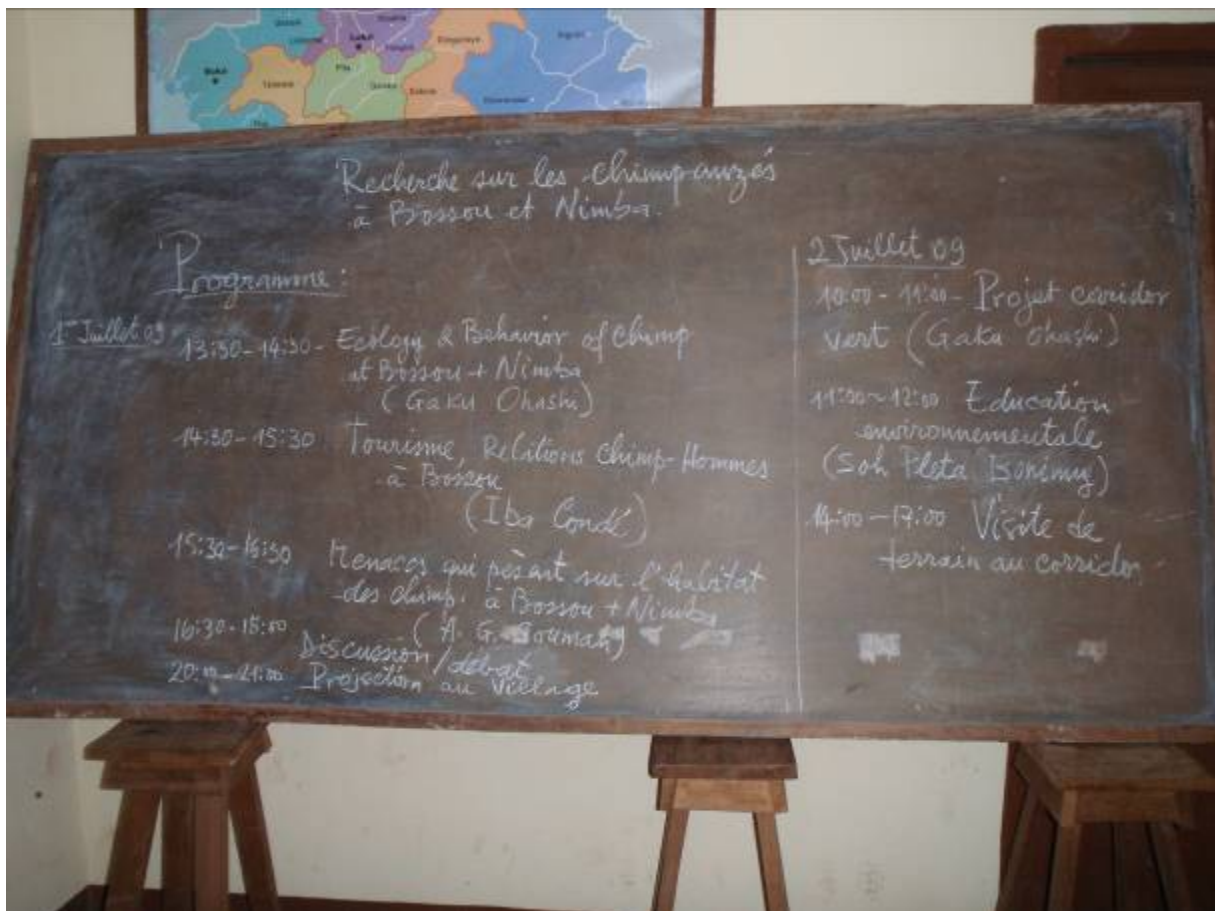 Boké
Télimélé
Pita
Labé
Dalaba
Dinguiraye
Siguiri
Recherche sur les chimpanzés
à Bossou et Nimba.
Programme :
1er Juillet 09
13:30-14:30 - Ecology & Behavior of Chimp
at Bossou + Nimba
(Gaku Ohashi)
14:30-15:30 Tourisme, Relations Chimp-Hommes
à Bossou
(Iba Condé)
15:30-16:30 Menaces qui pèsent sur l'habitat
des chimp. à Bossou + Nimba
(A. G. Soumah)
16:30-18:00 Discussion/débat
20:00-21:00 Projection au Village
2 Juillet 09
10:00 - 11:00 - Projet corridor
vert (Gaku Ohashi)
11:00~12:00 Education
environnementale
(Soh Pleta Bonimy)
14:00-17:00 Visite de
terrain au corridor